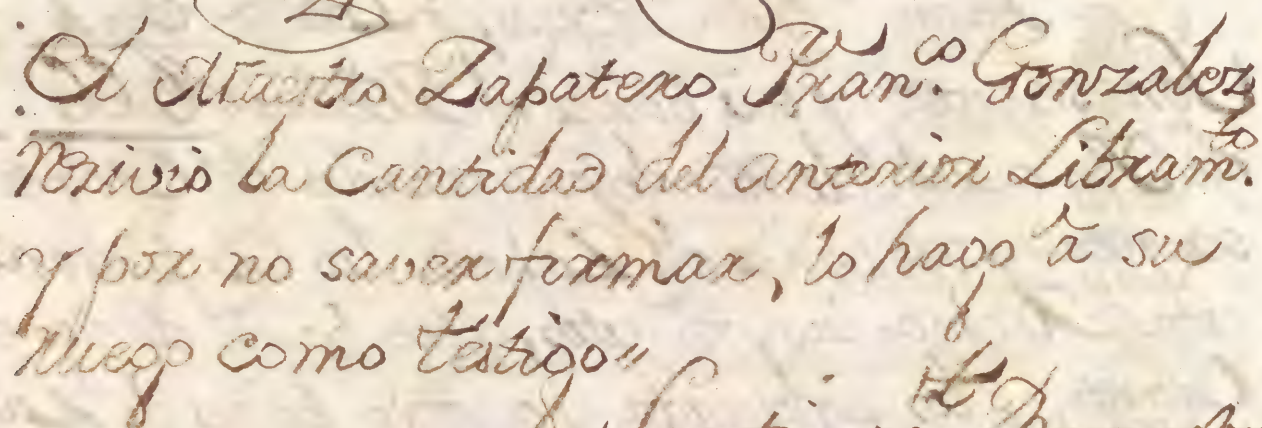 El Maestro Zapatero Fran.co Gonzalez
rezivio la Cantidad del anterior Libramto.
y por no saver firmar, lo hago à su
ruego como testigo"